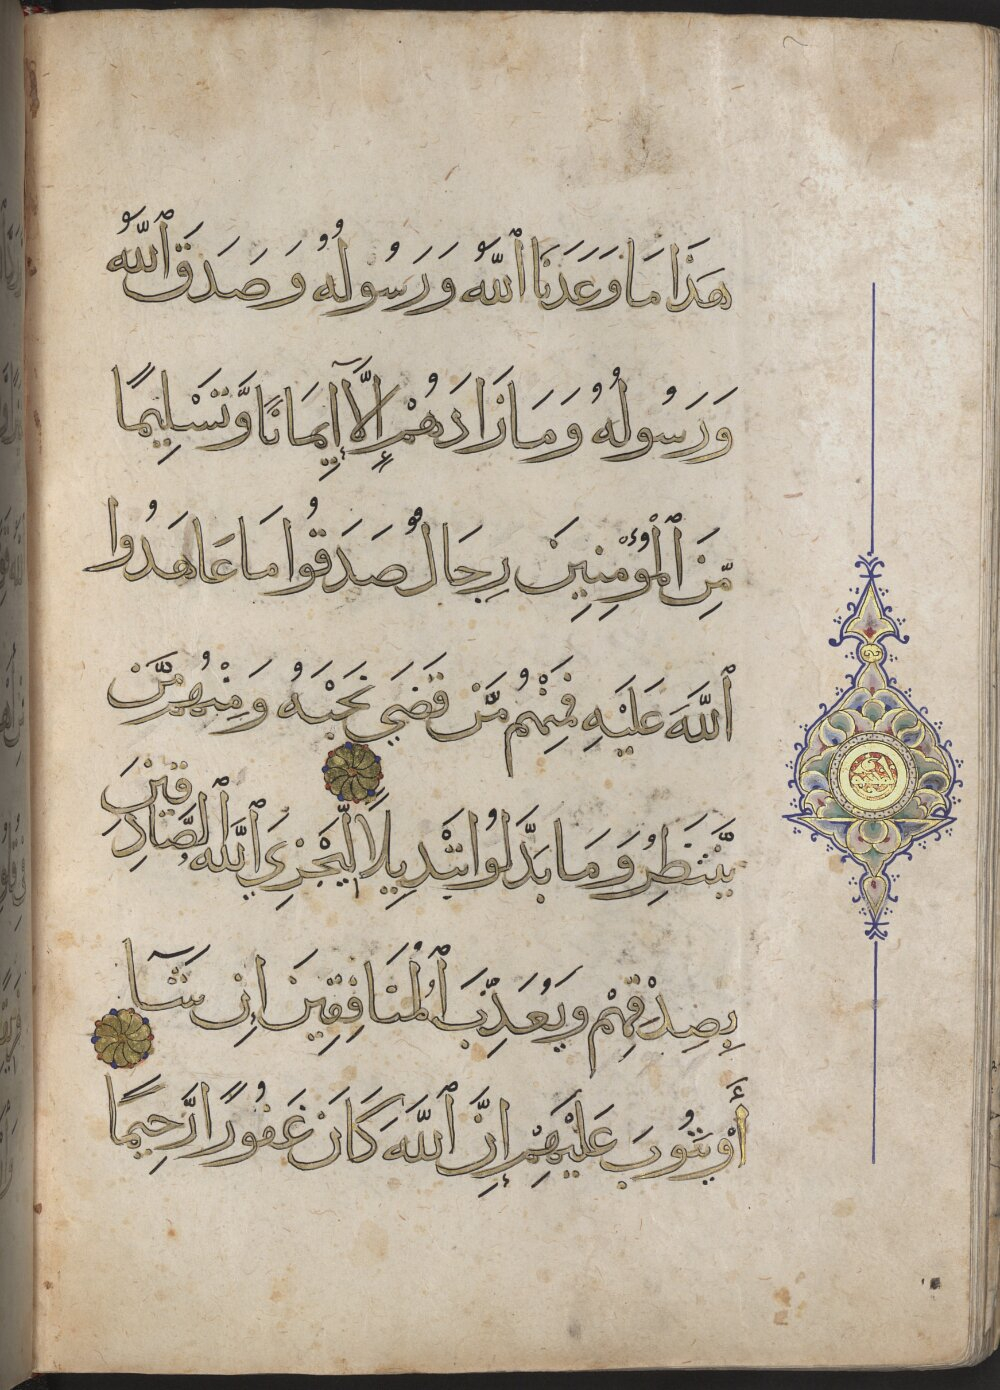 هَذَا مَا وَعَدَنَا ٱللَّهُ وَرَسُولُهُ وَصَدَقَ ٱللَّهُ
وَرَسُولُهُ وَمَا زَادَهُمْ إِلَّآ إِيمَانًا وَّتَسْلِيمًا
مِّنَ ٱلْمُؤْمِنِينَ رِجَالٌ صَدَقُوا مَا عَاهَدُوا
ٱللَّهَ عَلَيْهِ فَمِنْهُم مَّن قَضَىٰ نَحْبَهُ وَمِنْهُم مَّن
يَّنتَظِرُ وَمَا بَدَّلُوا تَبْدِيلًا لِّيَجْزِيَ ٱللَّهُ ٱلصَّادِقِينَ
بِصِدْقِهِمْ وَيُعَذِّبَ ٱلْمُنَافِقِينَ إِن شَآ
أَوْ يَتُوبَ عَلَيْهِمْ إِنَّ ٱللَّهَ كَانَ غَفُورًا رَّحِيمًا